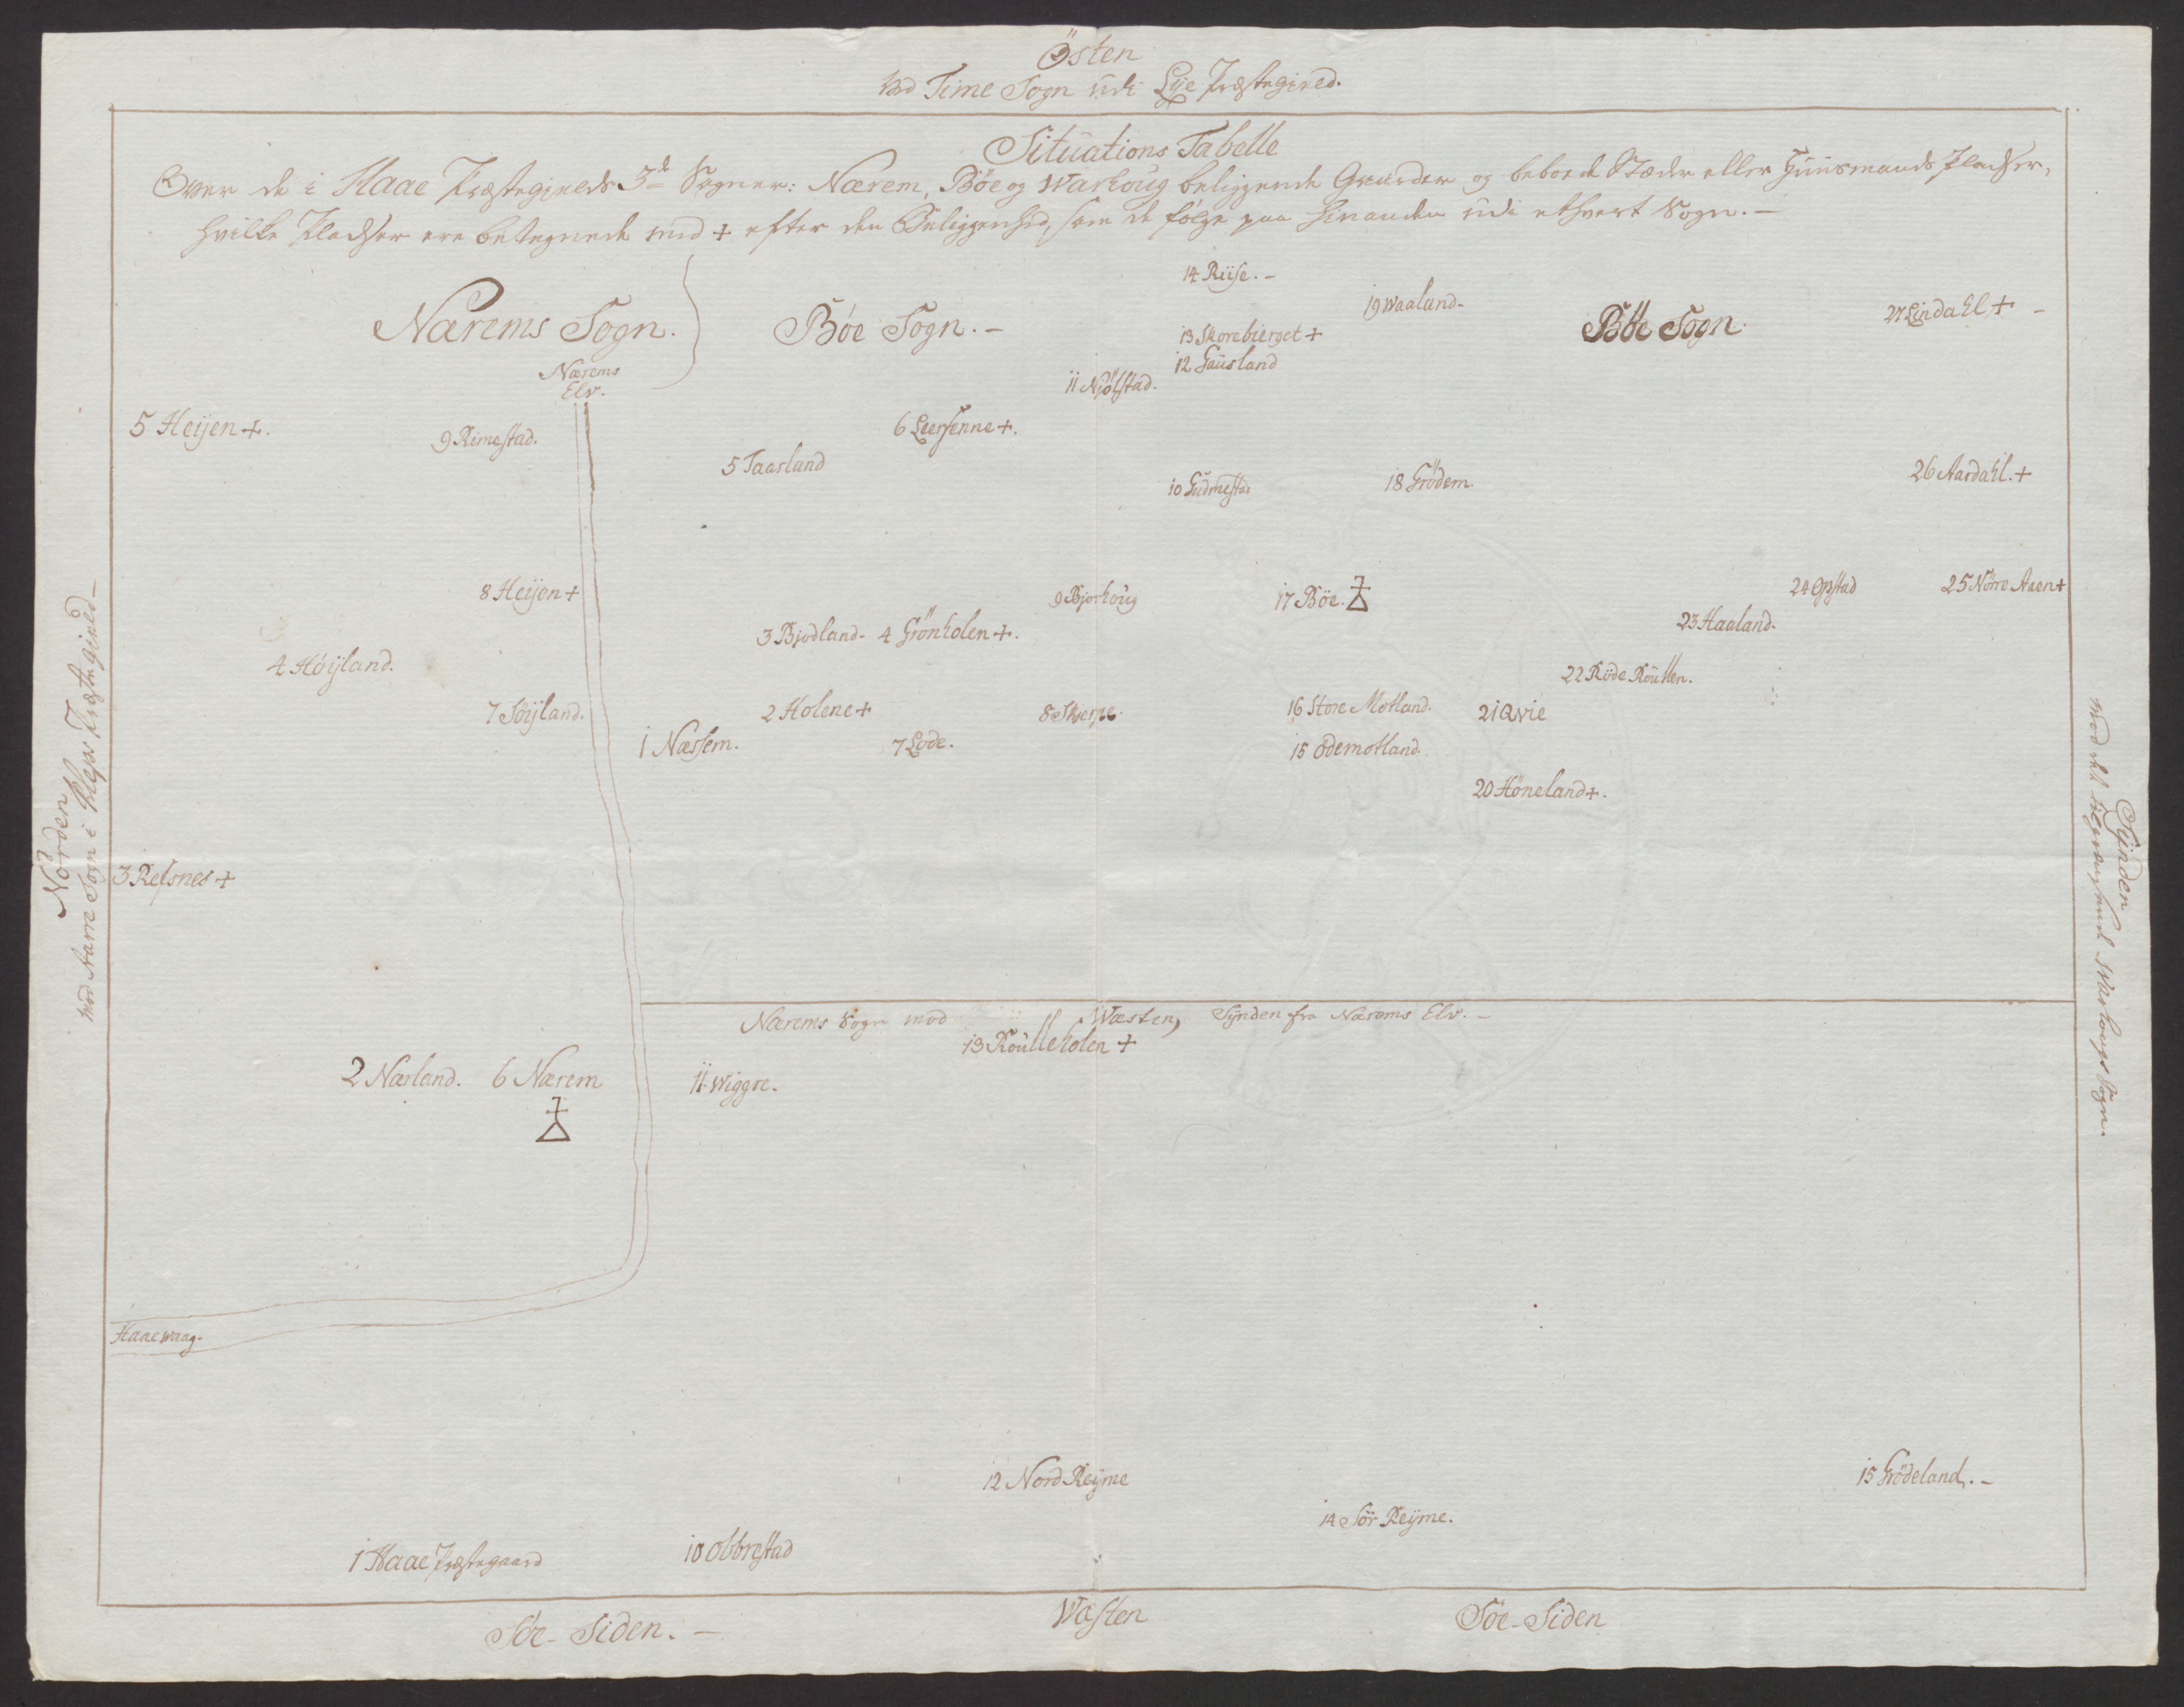 Östen
Mod Time Sogn udi Lÿe Præstegield.
Situations Tabelle
Over de i Haae Præstegields 3de Sogner: Nærem, Böe og Warhoug beliggende Gaarder og beboede Stæder eller Huusmands Pladser,
hvilke Pladser ere betegnede med + efter den Beliggenhed, som de følge paa hinanden udi ethvert Sogn. —
14 Riise. -
19 Waaland-
27 Lindahl + -
Nærems Sogn.
Böe Sogn. -
Böe Sogn.
13 Skorebierget +
12 Gausland
Nærems
Elv.
11 Niölstad.
5 Heijen +.
9 Rimestad.
6 Leersenne +.
5 Taarland
10 Gudmestad
18 Grödem.
26 Aardahl. +
8 Heijen +
9 Bjorhoug
17 Böe.
24 Opstad
25 Nörre Aaen +
3 Bjodland- 4 Grönholen +.
23 Haaland-
4 Höÿland.
22 Röde Koullen.
7 Söÿland.
2 Holene +
8 Skierpe.
16 Store Motland.
21 Qvie
1 Næssem.
7 Lode.
15 Ödemotland.
20 Höneland +.
3 Refsnes +
Nærems Sogn mod Wæsten, Sÿnden fra Nærems Elv. -
13 Koulleholen +
2 Nærland.
6 Nærem
11 Wiggre.
Haaewaag.
12 Nord Reÿme
15 Grödeland. -
14 Sör Reÿme.
1 Haae Præstegaard
10 Obbrestad
Söe-Siden. -
Wæsten
Söe-Siden
Nörden
mod Aarre Sogn i Kleps Præstegield -
Sÿnden
mod det tilgrændsende Warhougs Sogn.